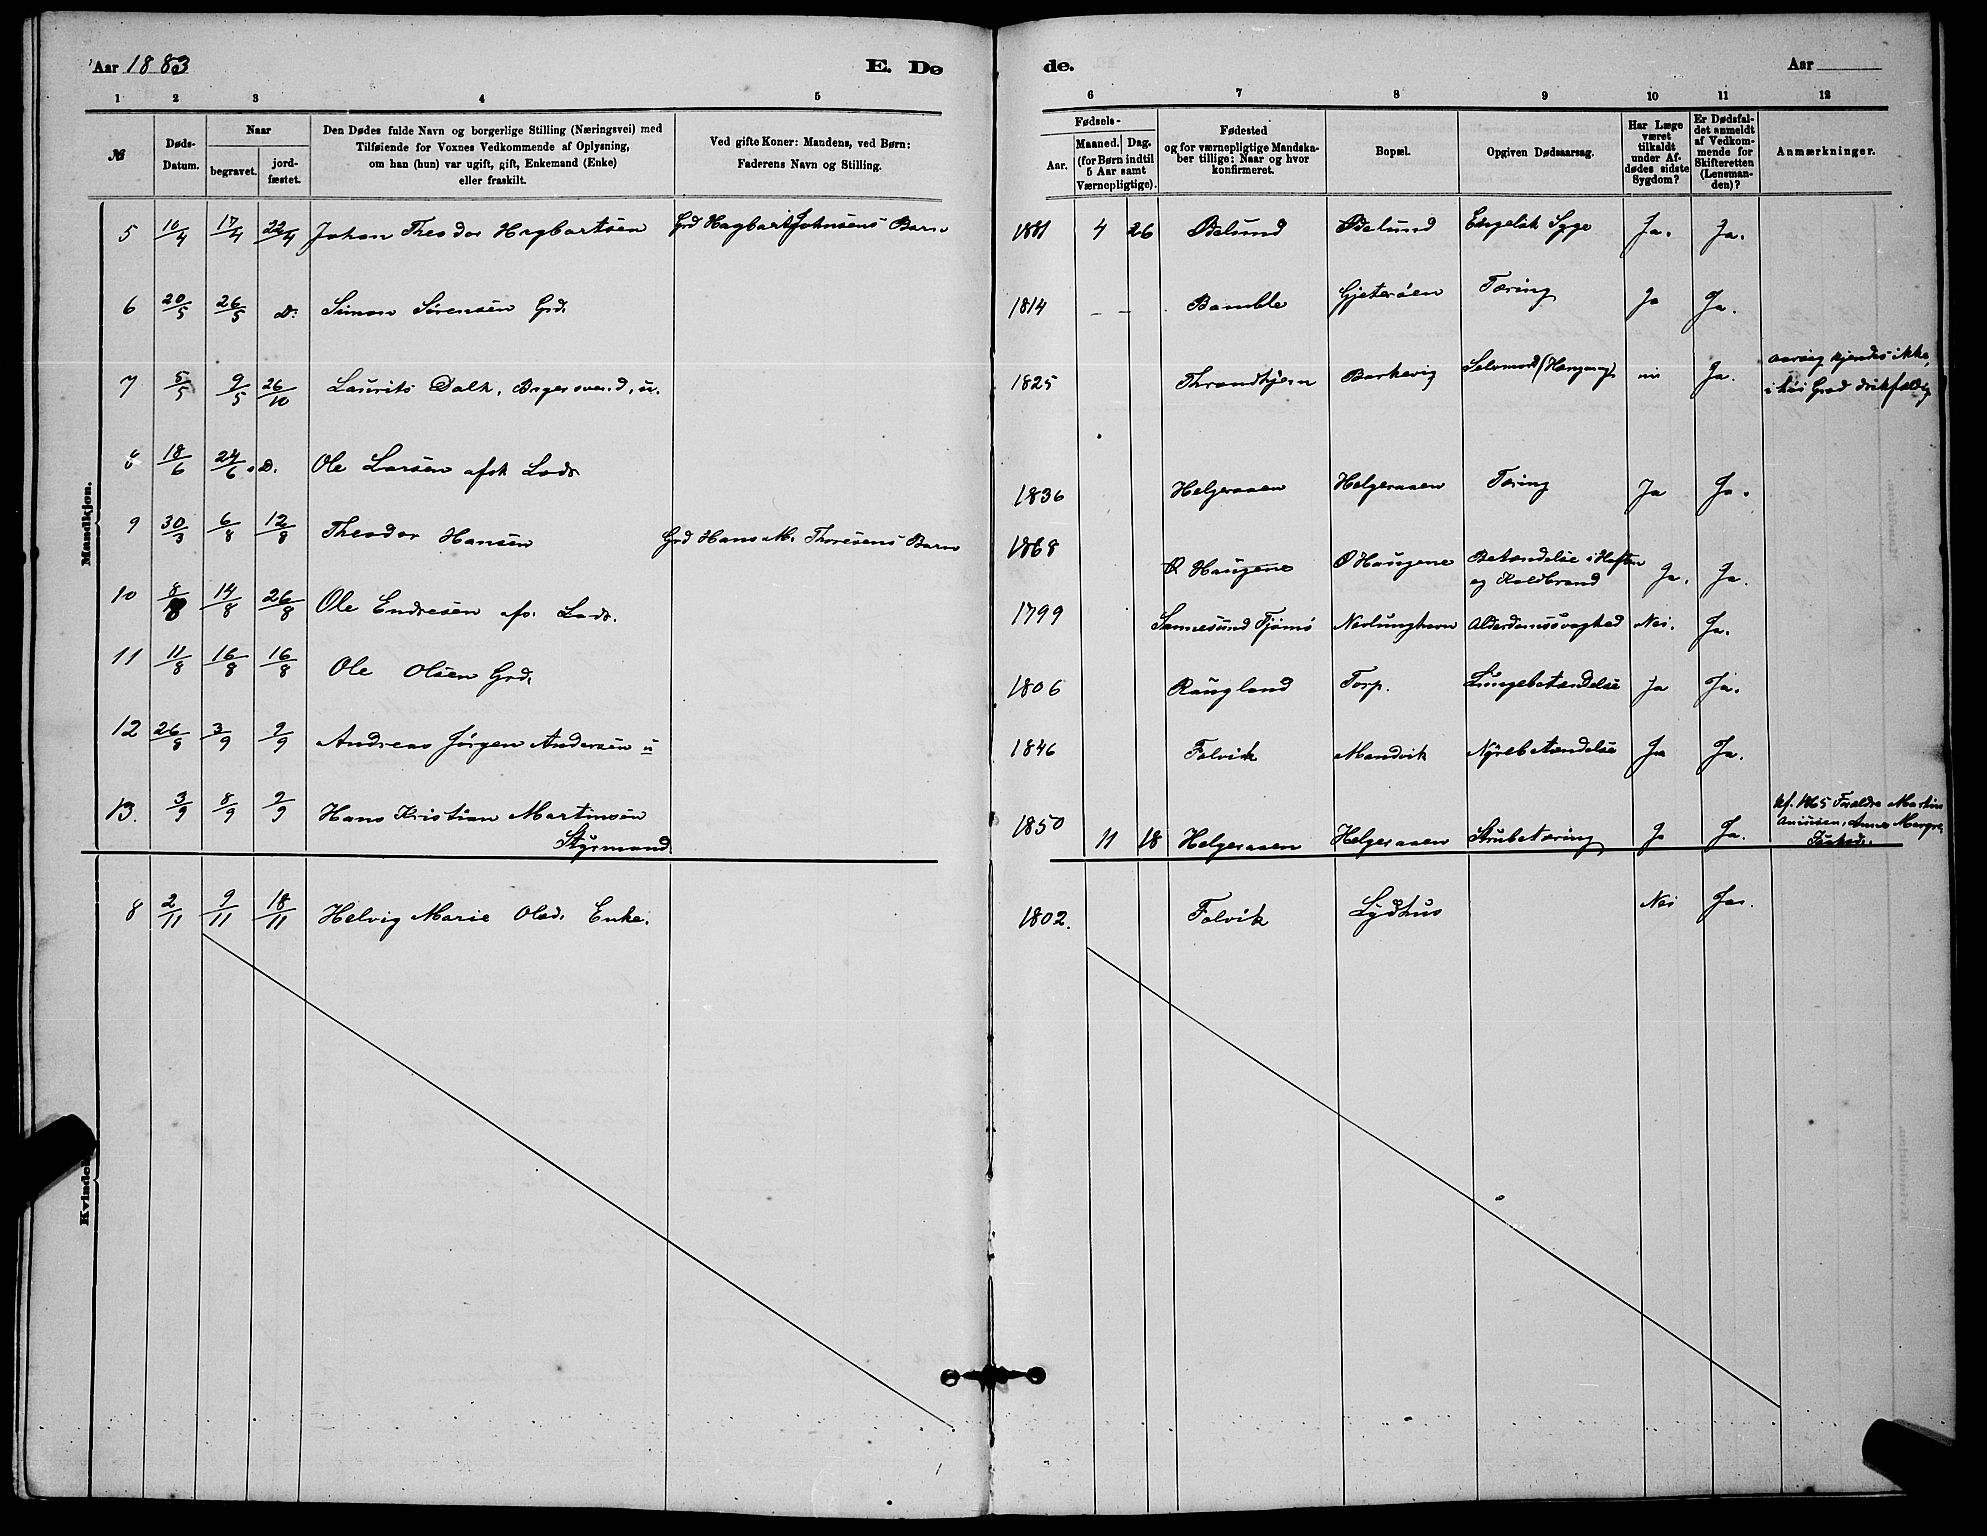 Aar 1883
E. Dø
de.
Aar
1 2 3 4 5
6 7 8 9 10 11 12
№
Døds-Datum.
Naar
begravet.
jord-fæstet.
Den Dødes fulde Navn og borgerlige Stilling (Næringsvei) med
Tilføiende for Voxnes Vedkommende af Oplysning,
om han (hun) var ugift, gift, Enkemand (Enke)
eller fraskilt.
Ved gifte Koner: Mandens, ved Børn:
Faderens Navn og Stilling.
Fødsels-
Aar.
Maaned. Dag.
(for Børn indtil
5 Aar samt
Værnepligtige).
Fødested
og for værnepligtige Mandska-
ber tillige: Naar og hvor
konfirmeret.
Bopæl.
Opgiven Dødsaarsag.
Har Læge
været
tilkaldt
under Af-
dødes sidste
Sygdom?
Er Dødsfal-
det anmeldt
af Vedkom-
mende for
Skifteretten
(Lensman-
den)?
Anmærkninger.
Mandkjøn.
5 16/4 17/4 22/4 Johan Theodor Hagbartsen Grd Hagbart Johnsens Barn 1881 4 26 Ødelund Ødelund Engelsk Syge Ja. Ja.
6 20/5 26/5 D. Simon Sørensen Grd. 1814 – – Bamble Gjeterøen Tæring Ja Ja.
7 5/5 9/5 26/10 Laurits Dalk, Bagersvend, u. 1825 Throndhjem Barkevig Selvmord (Hængning) nei Ja. aarsag kjendes ikke,
i høi Grad drikfældig
8 18/6 24/6 D. Ole Larsen afsk Lods 1836 Helgeraaen Helgeraaen Tæring Ja Ja.
9 30/3 6/8 12/8 Theodor Hansen Grd Hans M. Thoresens Barn 1868 Ø Haugene Ø Haugene Betændelse i Hoften
og Koldbrand Ja. Ja.
10 8/8 14/8 26/8 Ole Endresen afs. Lods. 1799 Sannesund Tjømø Nevlunghavn Alderdomssvaghed Nei. Ja.
11 11/8 16/8 16/8 Ole Olsen Grd. 1806 Raugland Torp. Lungebetændelse Ja Ja.
12 26/8 3/9 9/9 Andreas Jørgen Andersen u 1846 Folvik Mandvik Nyrebetændelse Ja Ja.
13. 3/9 8/9 9/9 Hans Kristian Martinsen
Styrmand 1850 11 18 Helgeraaen Helgeraaen Strubetæring Ja Ja. kf. 1865 Forældre Martin
Anne Margre.
8 2/11 9/11 18/11 Helvig Marie Olsd. Enke. 1802. Folvik Lydhus Nei Ja.
Kvindek